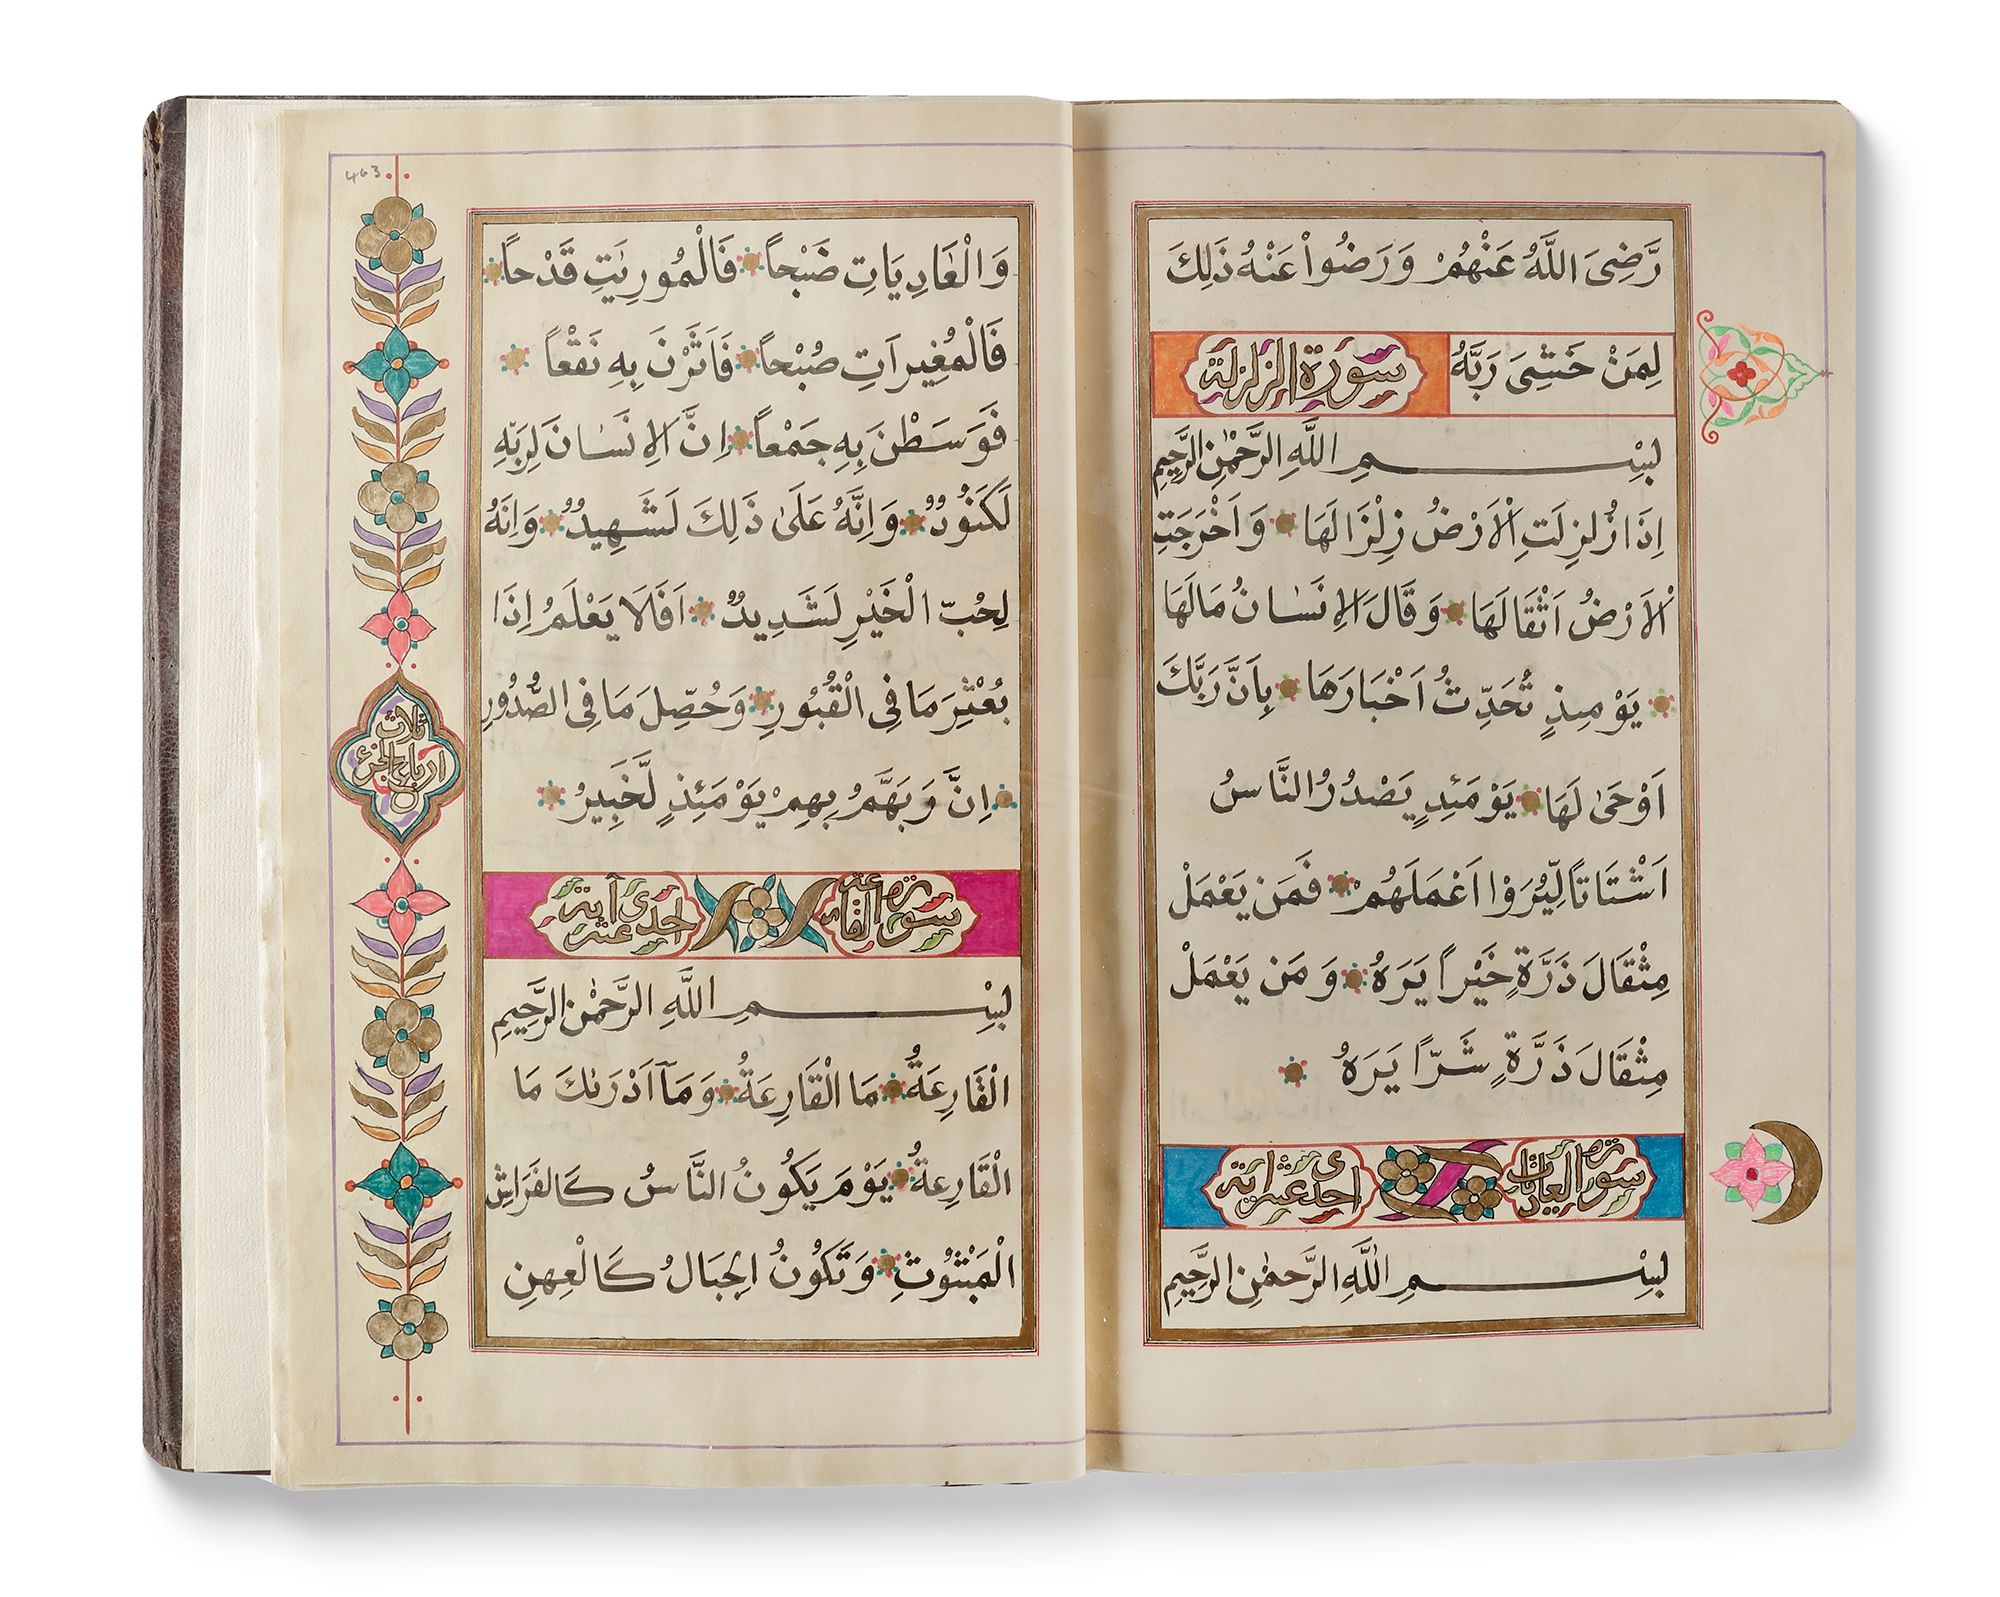 رَّضِىَ اللَّهُ عَنْهُمْ وَرَضُواْ عَنْهُ ذَلِكَ
لِمَنْ خَشِىَ رَبَّهُ سورة الزلزلة
بِسْمِ اللَّهِ الرَّحْمٰنِ الرَّحِيمِ
اِذَا زُلْزِلَتِ الْاَرْضُ زِلْزَالَهَا وَاَخْرَجَتِ
الْاَرْضُ اَثْقَالَهَا وَقَالَ الاِنسَٰانُ مَالَهَا
يَوْمَئِذٍ تُحَدِّثُ اَخْبَارَهَا بِاَنَّ رَبَّكَ
اَوْحَىٰ لَهَا يَوْمَئِذٍ يَصْدُرُ النَّاسُ
اَشْتَاتاً لِّيُرَوْا اَعْمَلَهُمْ فَمَن يَعْمَلْ
مِثْقَالَ ذَرَّةٍ خَيْراً يَرَهُ وَمَن يَعْمَلْ
مِثْقَالَ ذَرَّةٍ شَرّاً يَرَهُ
سورة العاديات احدى عشر اية
بِسْمِ اللَّهِ الرَّحمٰنِ الرَّحِيمِ
463
وَالْعَادِيَاتِ ضَبْحاً فَالْمُورِيَٰتِ قَدْحاً
فَالْمُغِيرَاتِ صُبْحاً فَاَثَرْنَ بِهِ نَقْعاً
فَوَسَطْنَ بِهِ جَمْعاً اِنَّ الاِنسَٰانَ لِرَبِّهِ
لَكَنُودٌ وَاِنَّهُ عَلَىٰ ذَلِكَ لَشَهِيدٌ وَاِنَّهُ
لِحُبِّ الْخَيْرِ لَشَدِيدٌ اَفَلَا يَعْلَمُ اِذَا
بُعْثِرَ مَا فِى الْقُبُورِ وَحُصِّلَ مَا فِى الصُّدُورِ
اِنَّ رَبَّهُمْ بِهِمْ يَوْمَئِذٍ لَّخَبِيرُ
سورة القارعة احدى عشر آية
بِسْمِ اللَّهِ الرَّحْمٰنِ الرَّحِيمِ
الْقَارِعَةُ مَا الْقَارِعَةُ وَمَآ اَدْرَىٰكَ مَا
الْقَارِعَةُ يَوْمَ يَكُونُ النَّاسُ كَالْفَرَاشِ
الْمَبْثُوثِ وَتَكُونُ الْجِبَالُ كَالْعِهْنِ
ثلاث
ارباع الجزئ